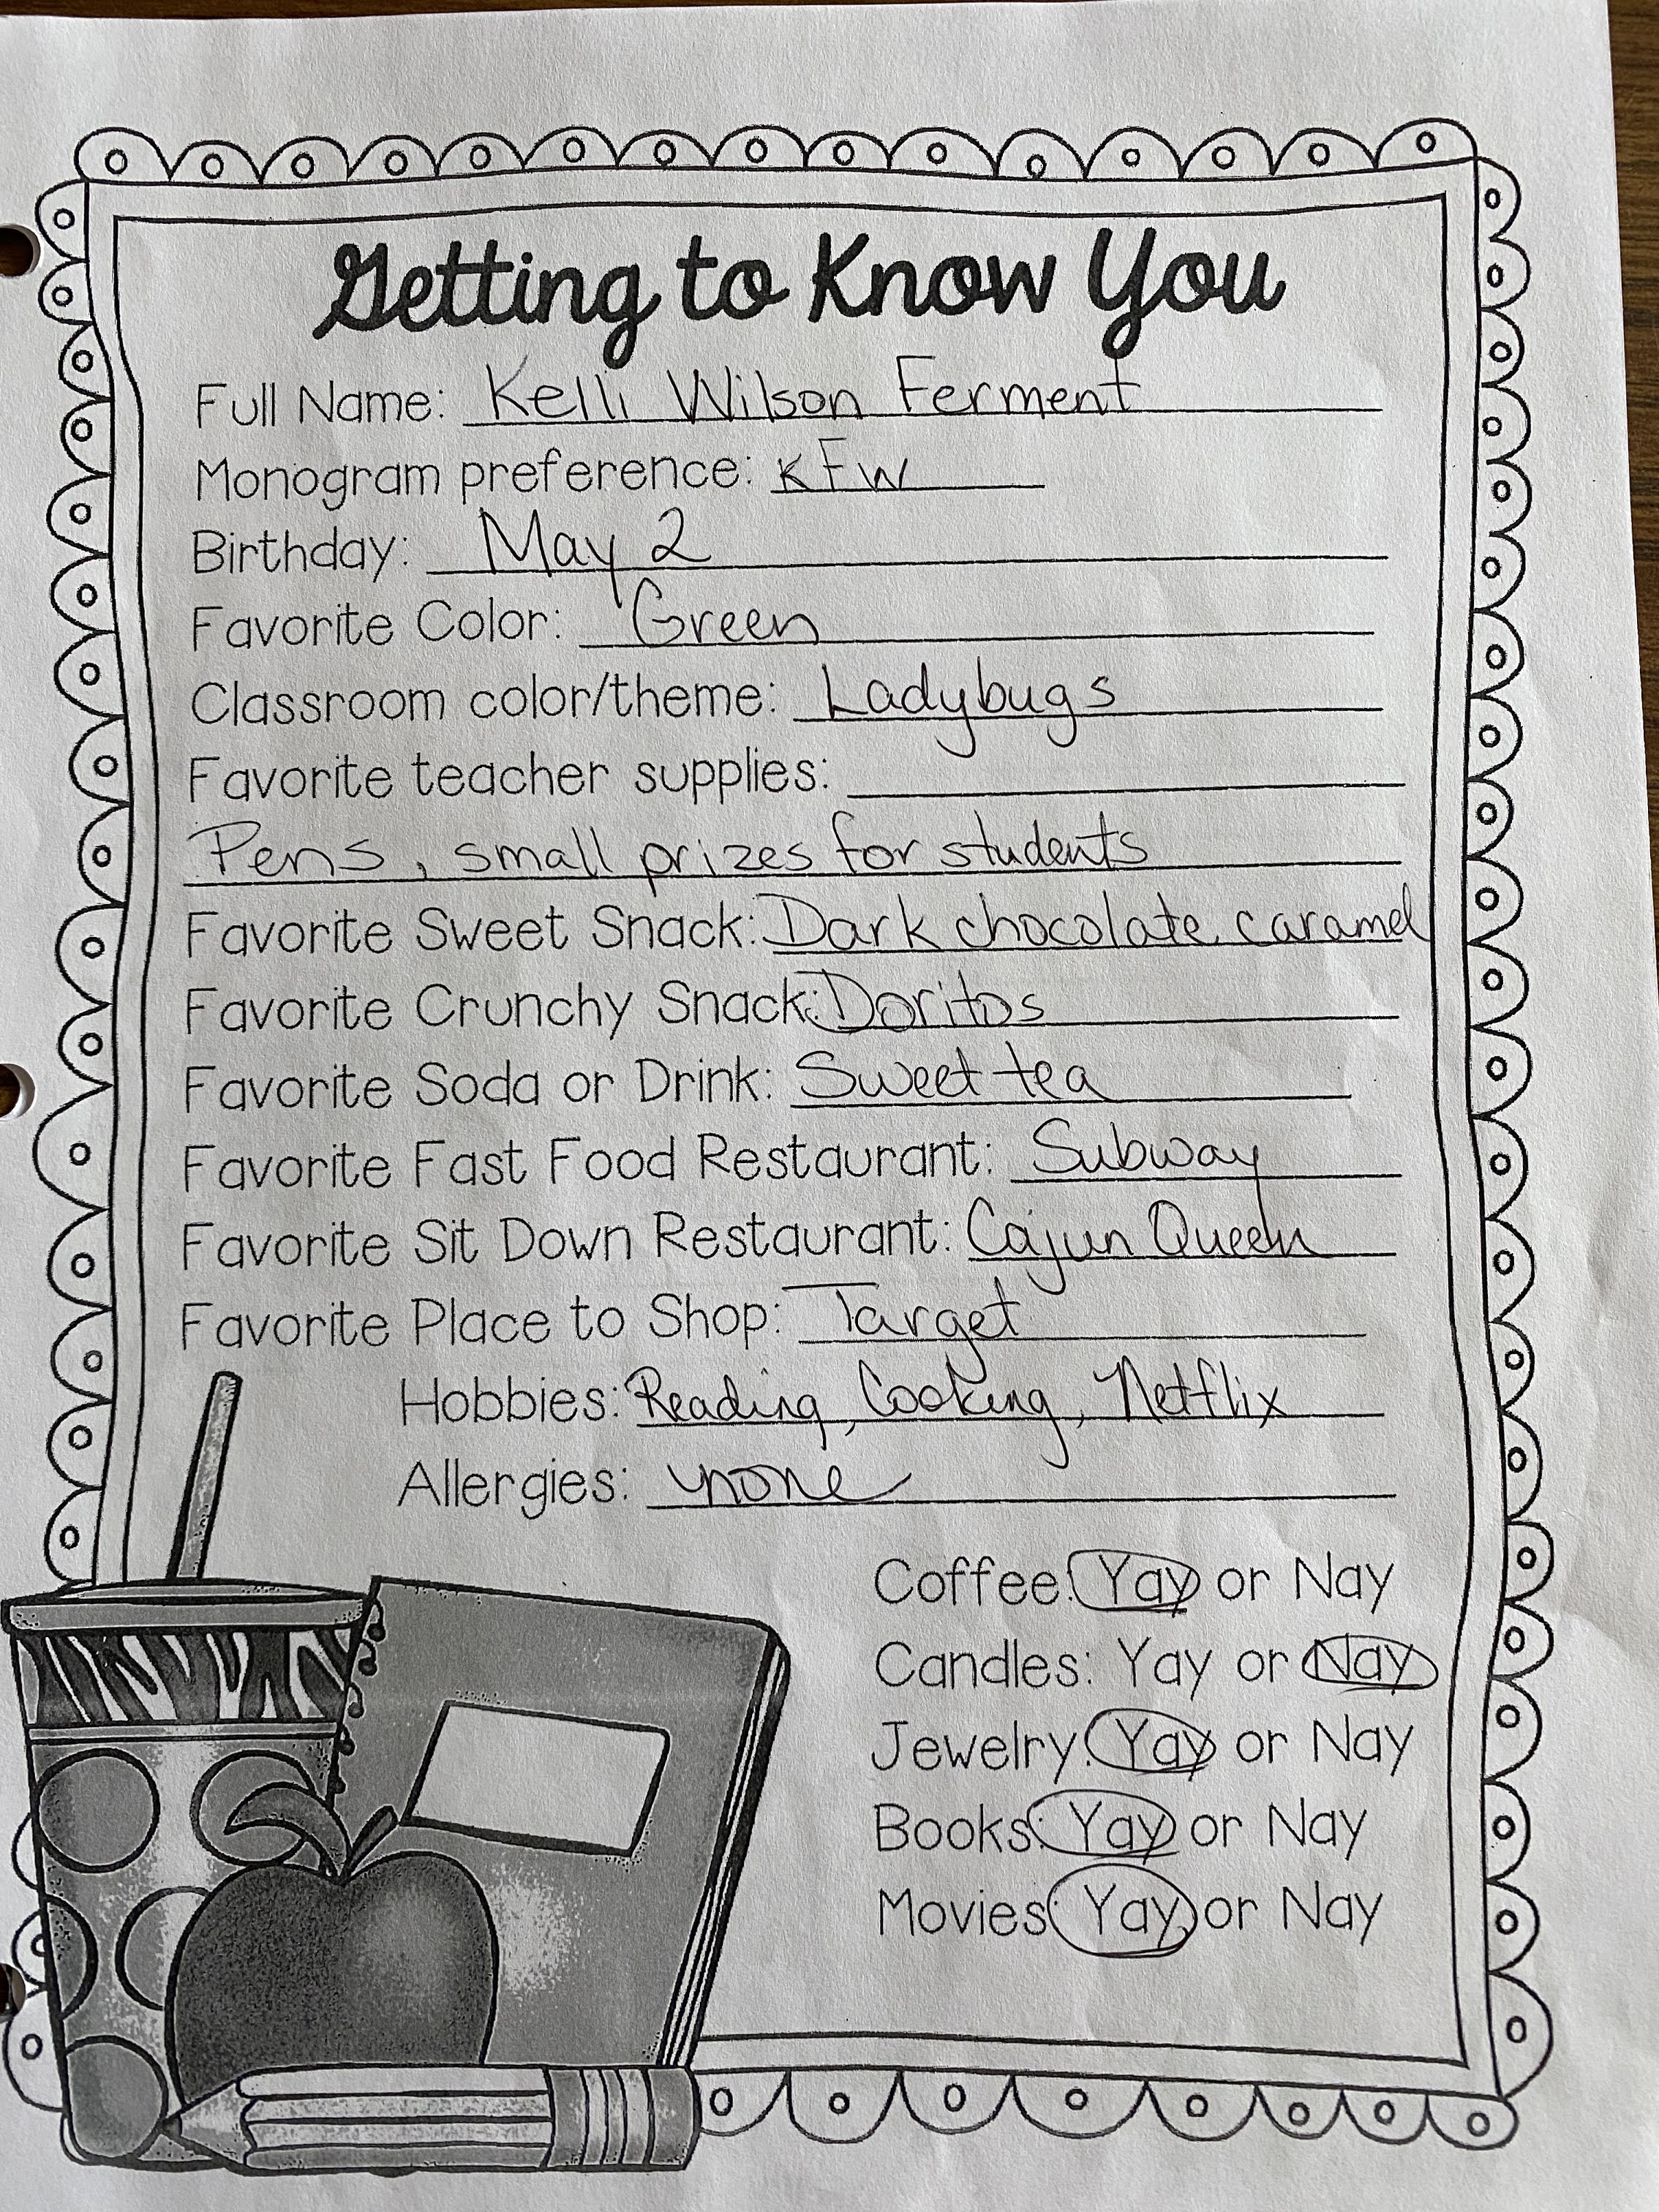 Getting to Know You
Full Name: Kelli Wilson Ferment
Monogram preference: KFW
Birthday: May 2
Favorite Color: Green
Classroom color/theme: Ladybugs
Favorite teacher supplies:
Pens, small prizes for students
Favorite Sweet Snack: Dark chocolate caramel
Favorite Crunchy Snack: Doritos
Favorite Soda or Drink: Sweet tea
Favorite Fast Food Restaurant: Subway
Favorite Sit Down Restaurant: Cajun Queen
Favorite Place to Shop: Target
Hobbies: Reading, Cooking, Netflix
Allergies: none
Coffee: Yay or Nay
Candles: Yay or Nay
Jewelry: Yay or Nay
Books: Yay or Nay
Movies: Yay or Nay